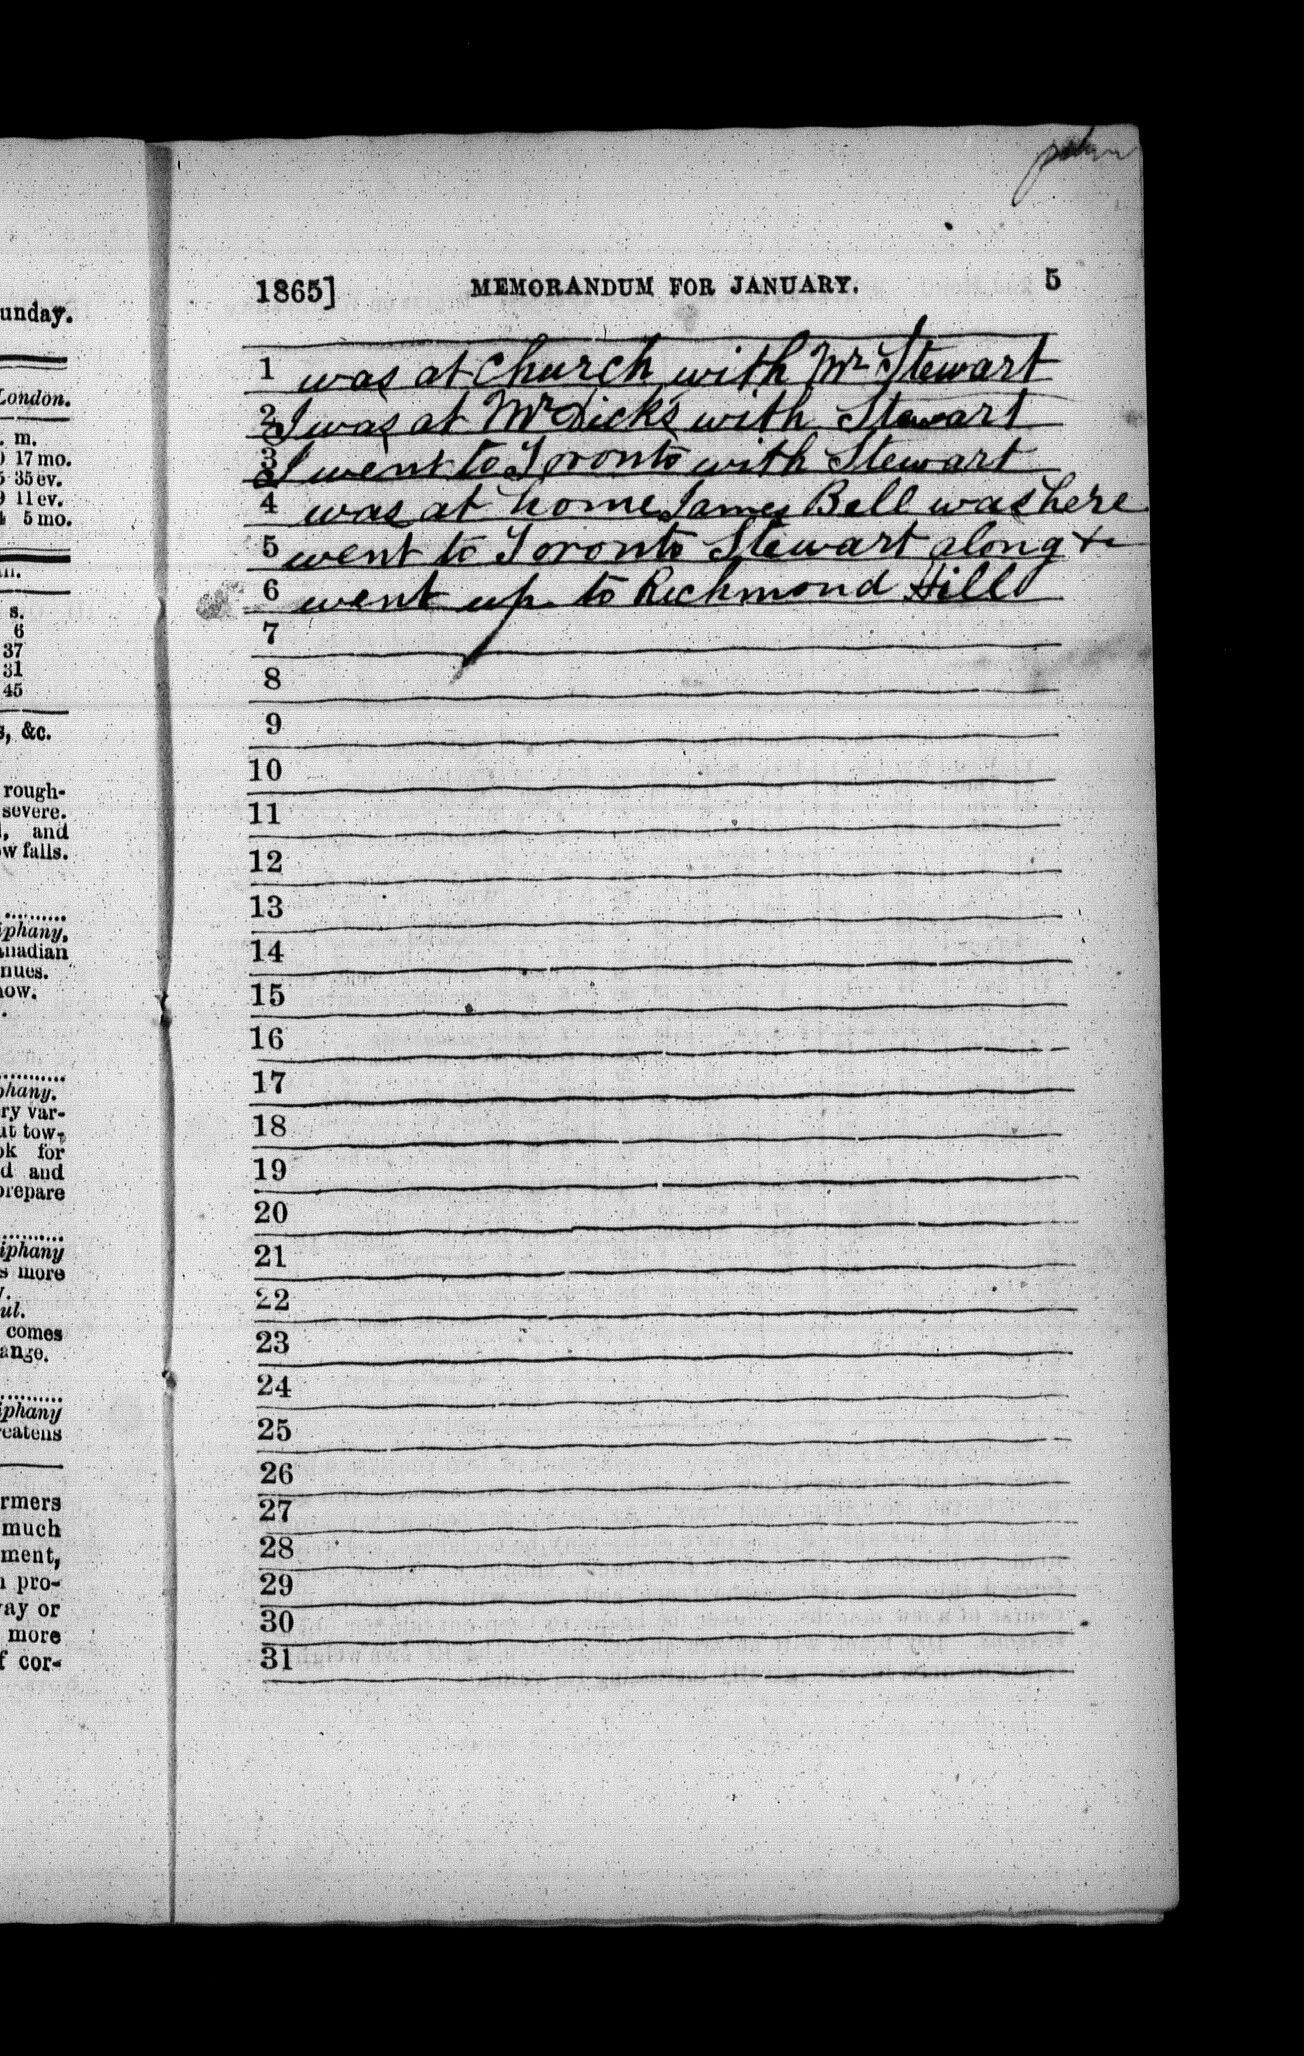 unday.
London.
. m.
17 mo.
35 ev.
11 ev.
5 mo.
s.
6
37
31
45
, &c.
rough-
severe.
, and
w falls.
iphany,
anadian
nues.
now.
phany.
ry var-
ut tow-
ok for
d and
prepare
iphany
s more
ul.
comes
ange.
iphany
reatens
rmers
much
ment,
pro-
ay or
more
f cor-
1865] MEMORANDUM FOR JANUARY. 5
1 was at church with Mr Stewart
2 I was at Mr Dick's with Stewart
3 I went to Toronto with Stewart
4 was at home James Bell was here
5 went to Toronto Stewart along &
6 went up to Richmond Hill
7
8
9
10
11
12
13
14
15
16
17
18
19
20
21
22
23
24
25
26
27
28
29
30
31